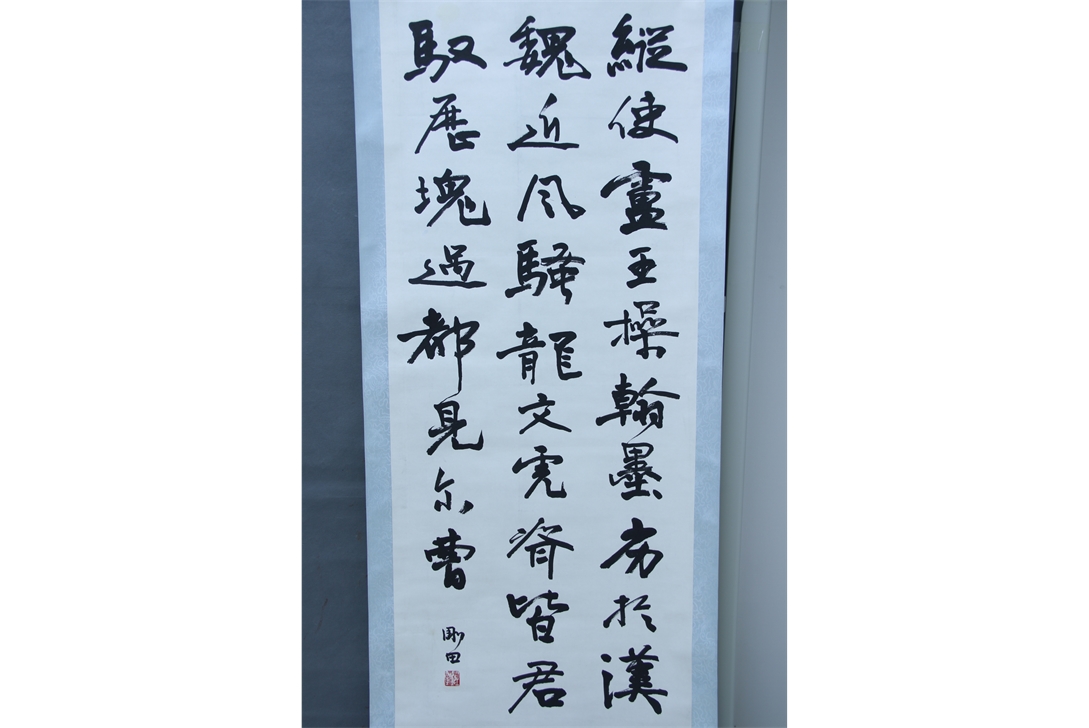 縱使盧王操翰墨劣於漢
魏近风騷龍文虎脊皆君
馭歷塊過都見尔曹
剛田